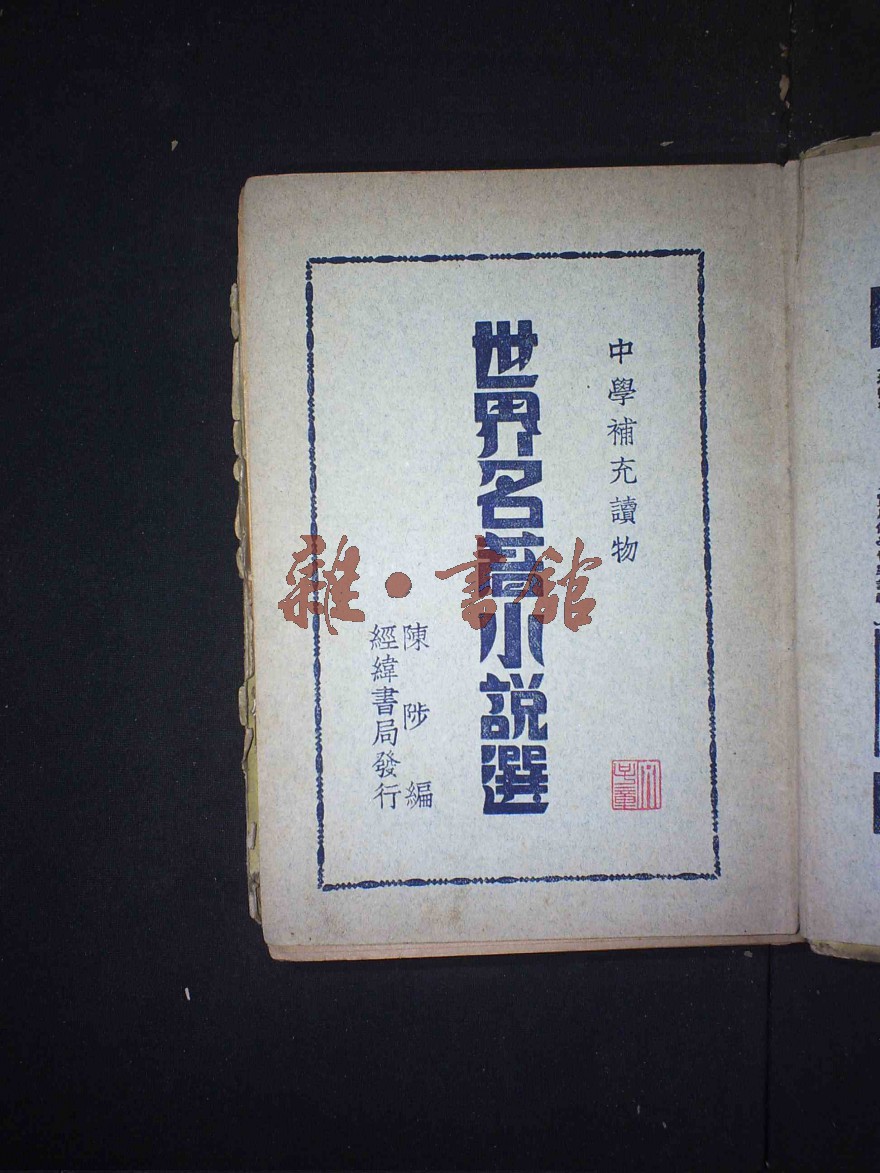 中學補充讀物
世界名著小說選
陳陟編
經緯書局發行
雜·書館